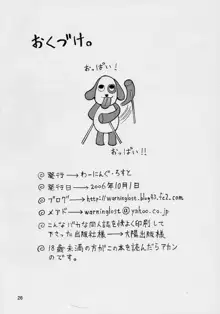 おくづけ。
おっぱい!
おっぱい!!
@ 発行 → わーにんぐ・ろすと
@ 発行日 → 2006年10月1日
@ ブログ → http://warninglost.blog83.fc2.com
@ メアド → warninglost@yahoo.co.jp
@ こんなバカな同人誌を快よく印刷して
下さった出版社様 → 大陽出版様
@ 18歳未満の方がこの本を読んだらアカン
のです。
26